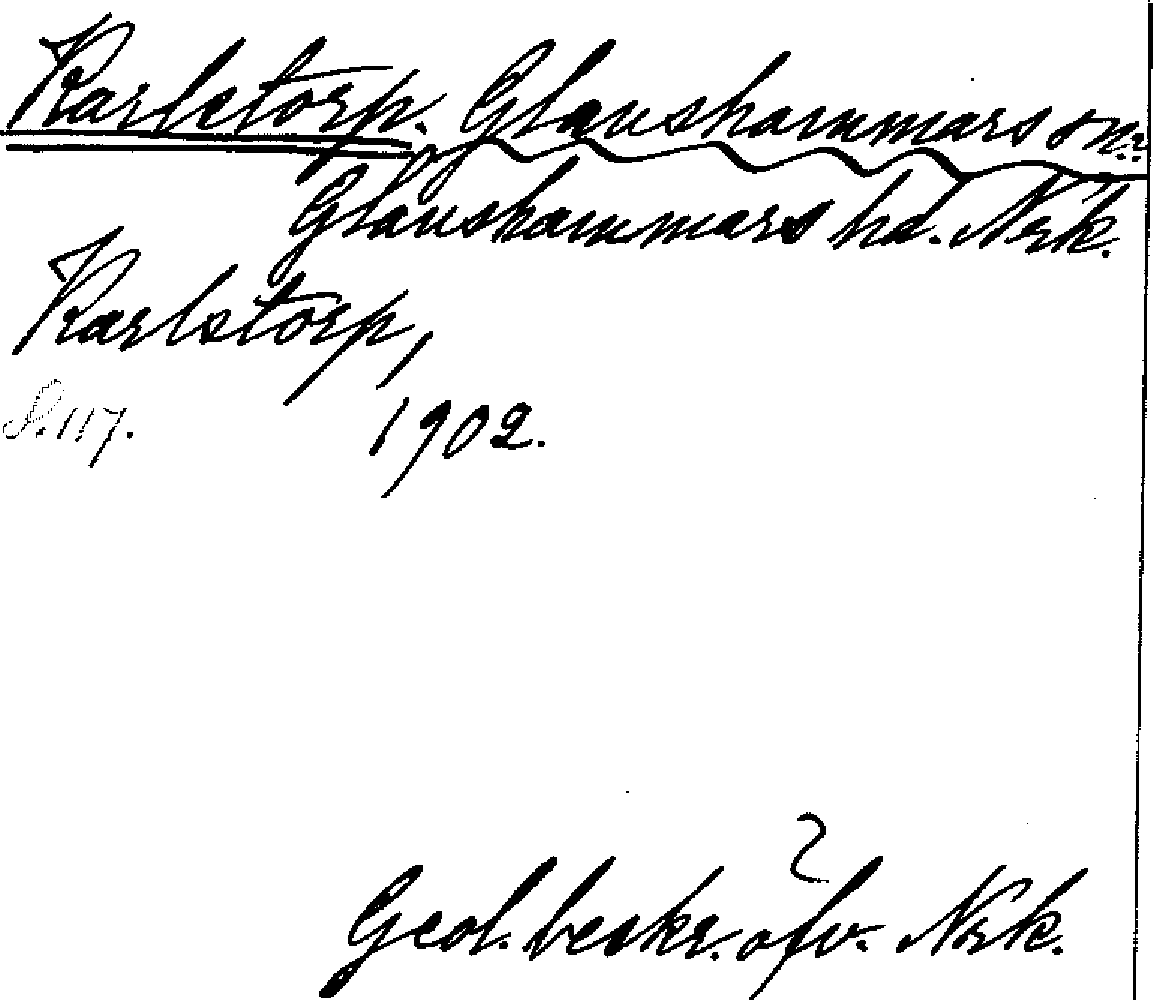 Karlstorp. Glanshammars sn.
Glanshammars hd. Nrk.
Karlstorp,
S. 117. 1902.
Geol. beskr. öfv. Nrk.